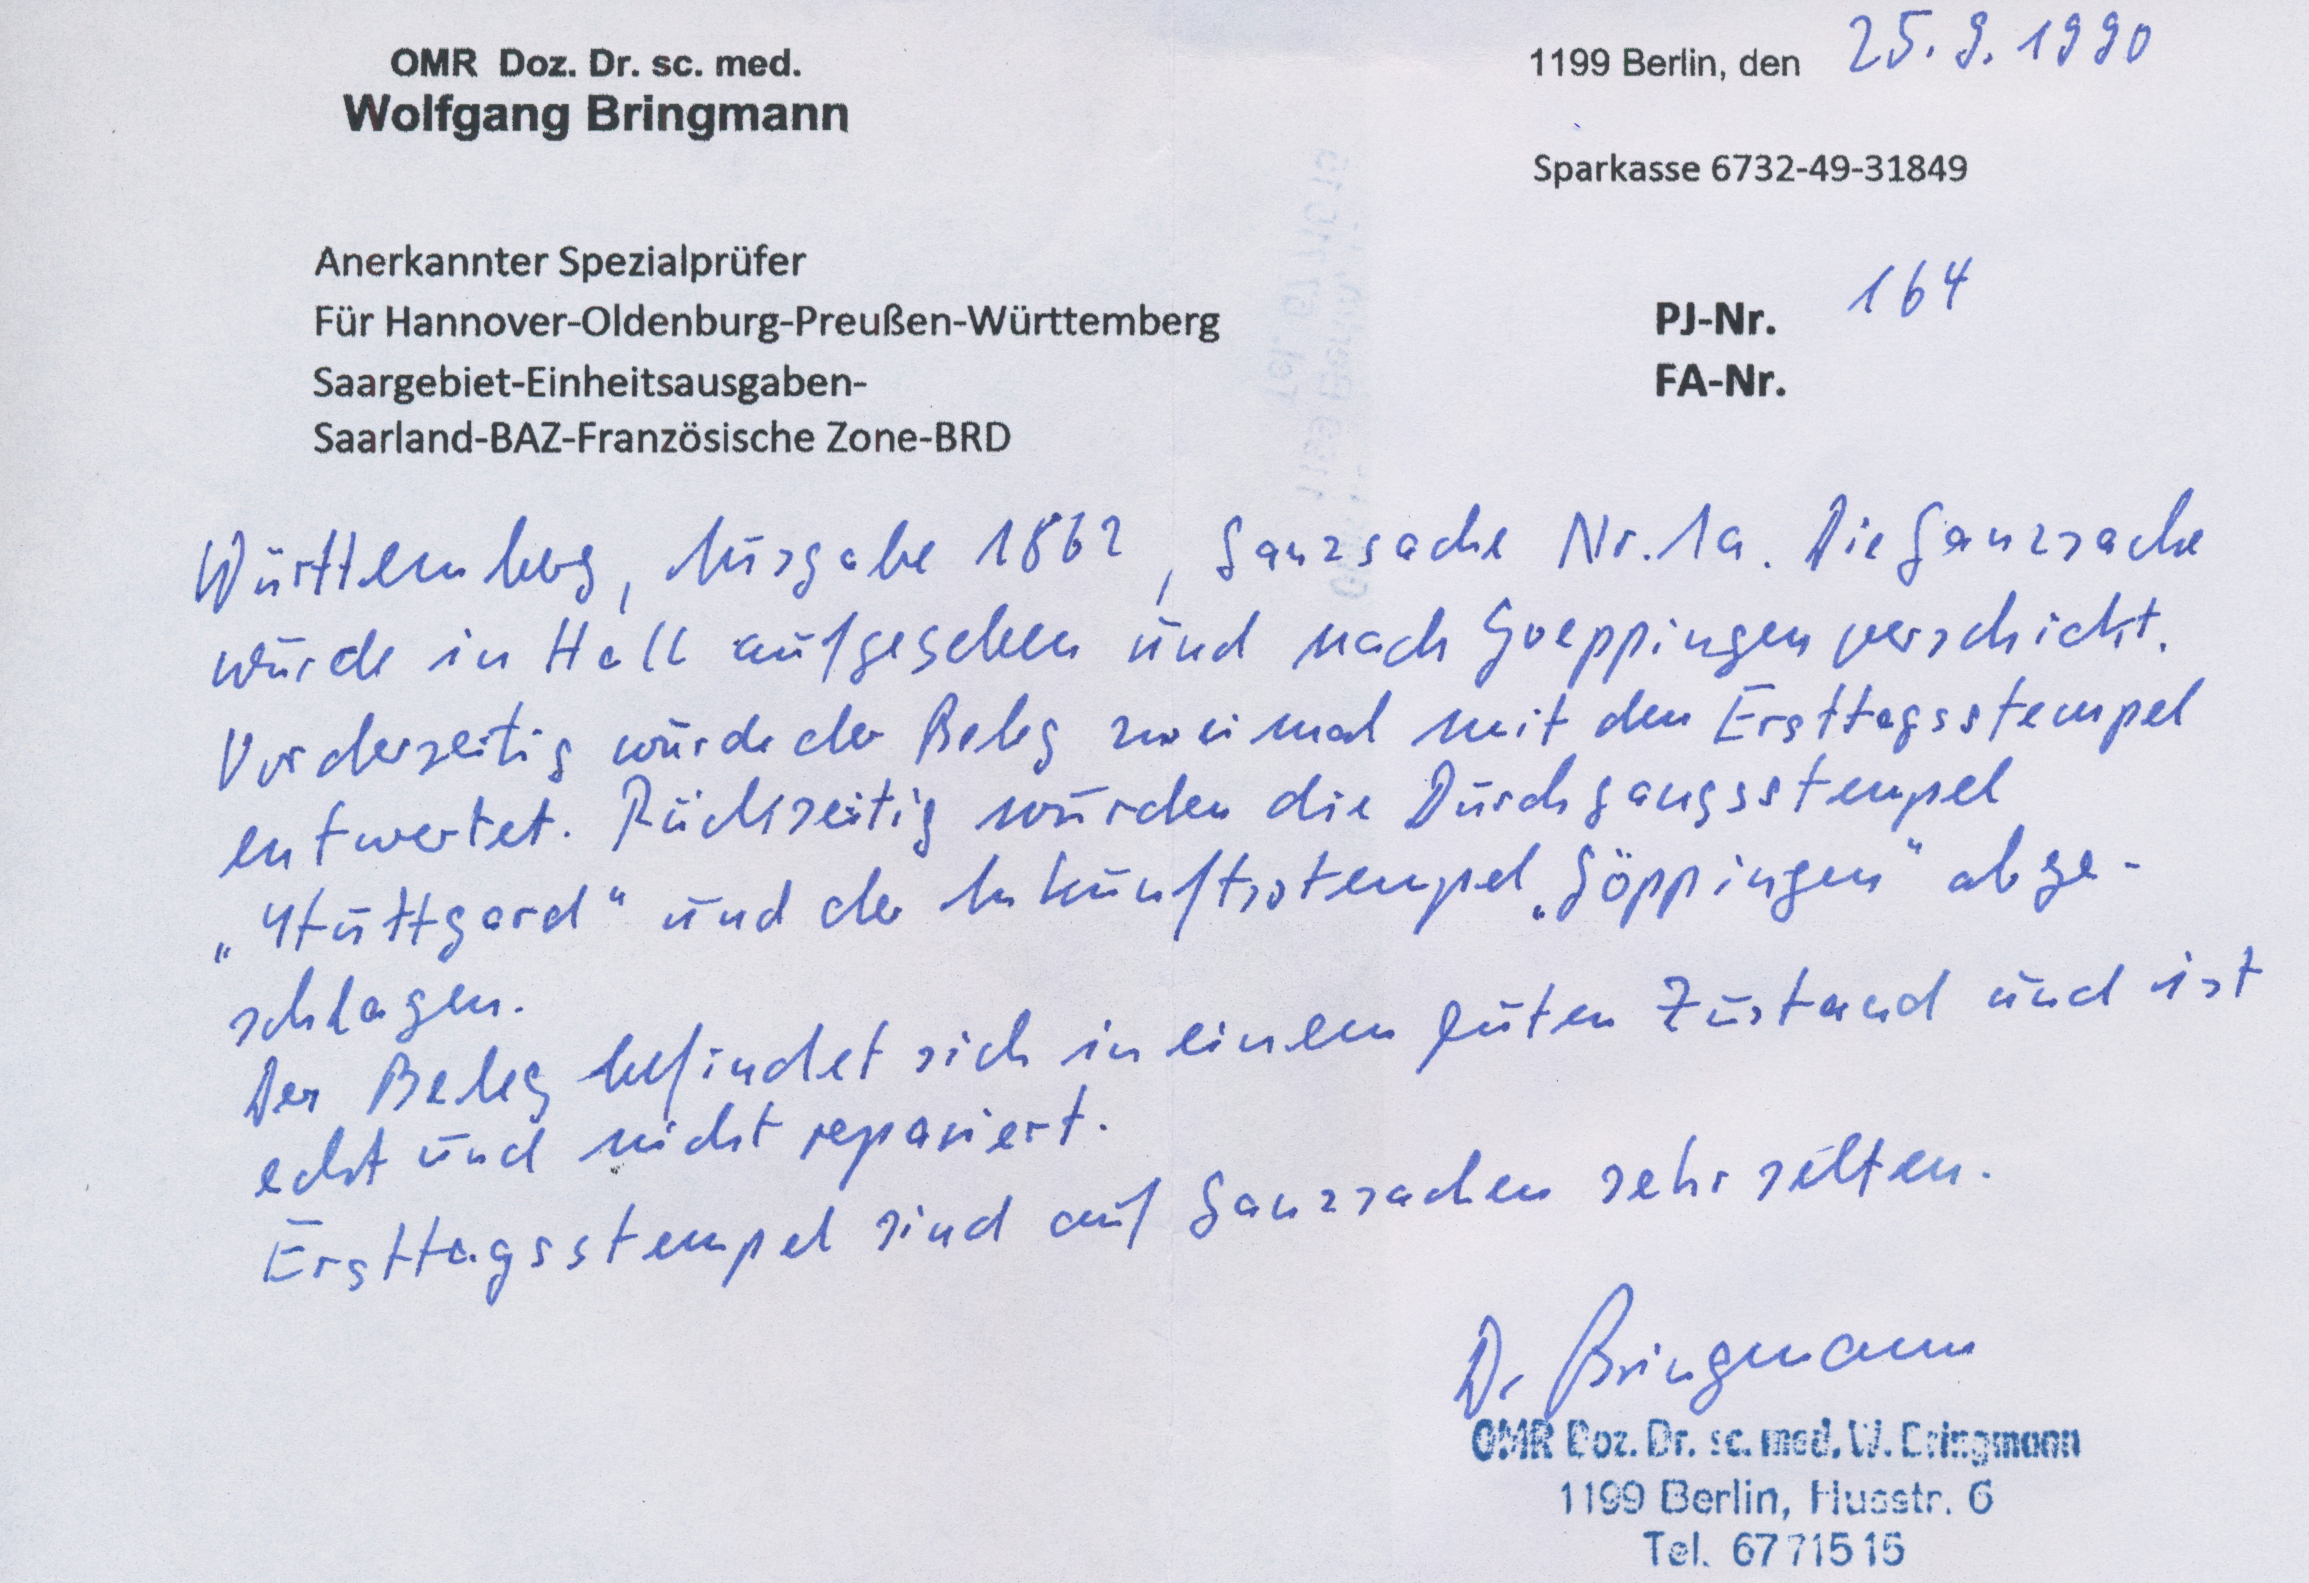 OMR Doz. Dr. sc. med.
Wolfgang Bringmann
1199 Berlin, den 25.9.1990
Sparkasse 6732-49-31849
Anerkannter Spezialprüfer
Für Hannover-Oldenburg-Preußen-Württemberg
Saargebiet-Einheitsausgaben-
Saarland-BAZ-Französische Zone-BRD
PJ-Nr. 164
FA-Nr.
Württemberg, Ausgabe 1862, Ganzsache Nr. 1a. Die Ganzsache
wurde in Hall aufgegeben und nach Goeppingen verschickt.
Vorderseitig wurde der Beleg zweimal mit den Ersttagsstempel
entwertet. Rückseitig wurden die Durchgangsstempel
„Stuttgard“ und der Ankunftsstempel „Göppingen“ abge-
schlagen.
Der Beleg befindet sich in einem guten Zustand und ist
echt und nicht repariert.
Ersttagsstempel sind auf Ganzsachen sehr selten.
Dr Bringmann
OMR Doz. Dr. sc. med. W. Bringmann
1199 Berlin, Husstr. 6
Tel. 6771515